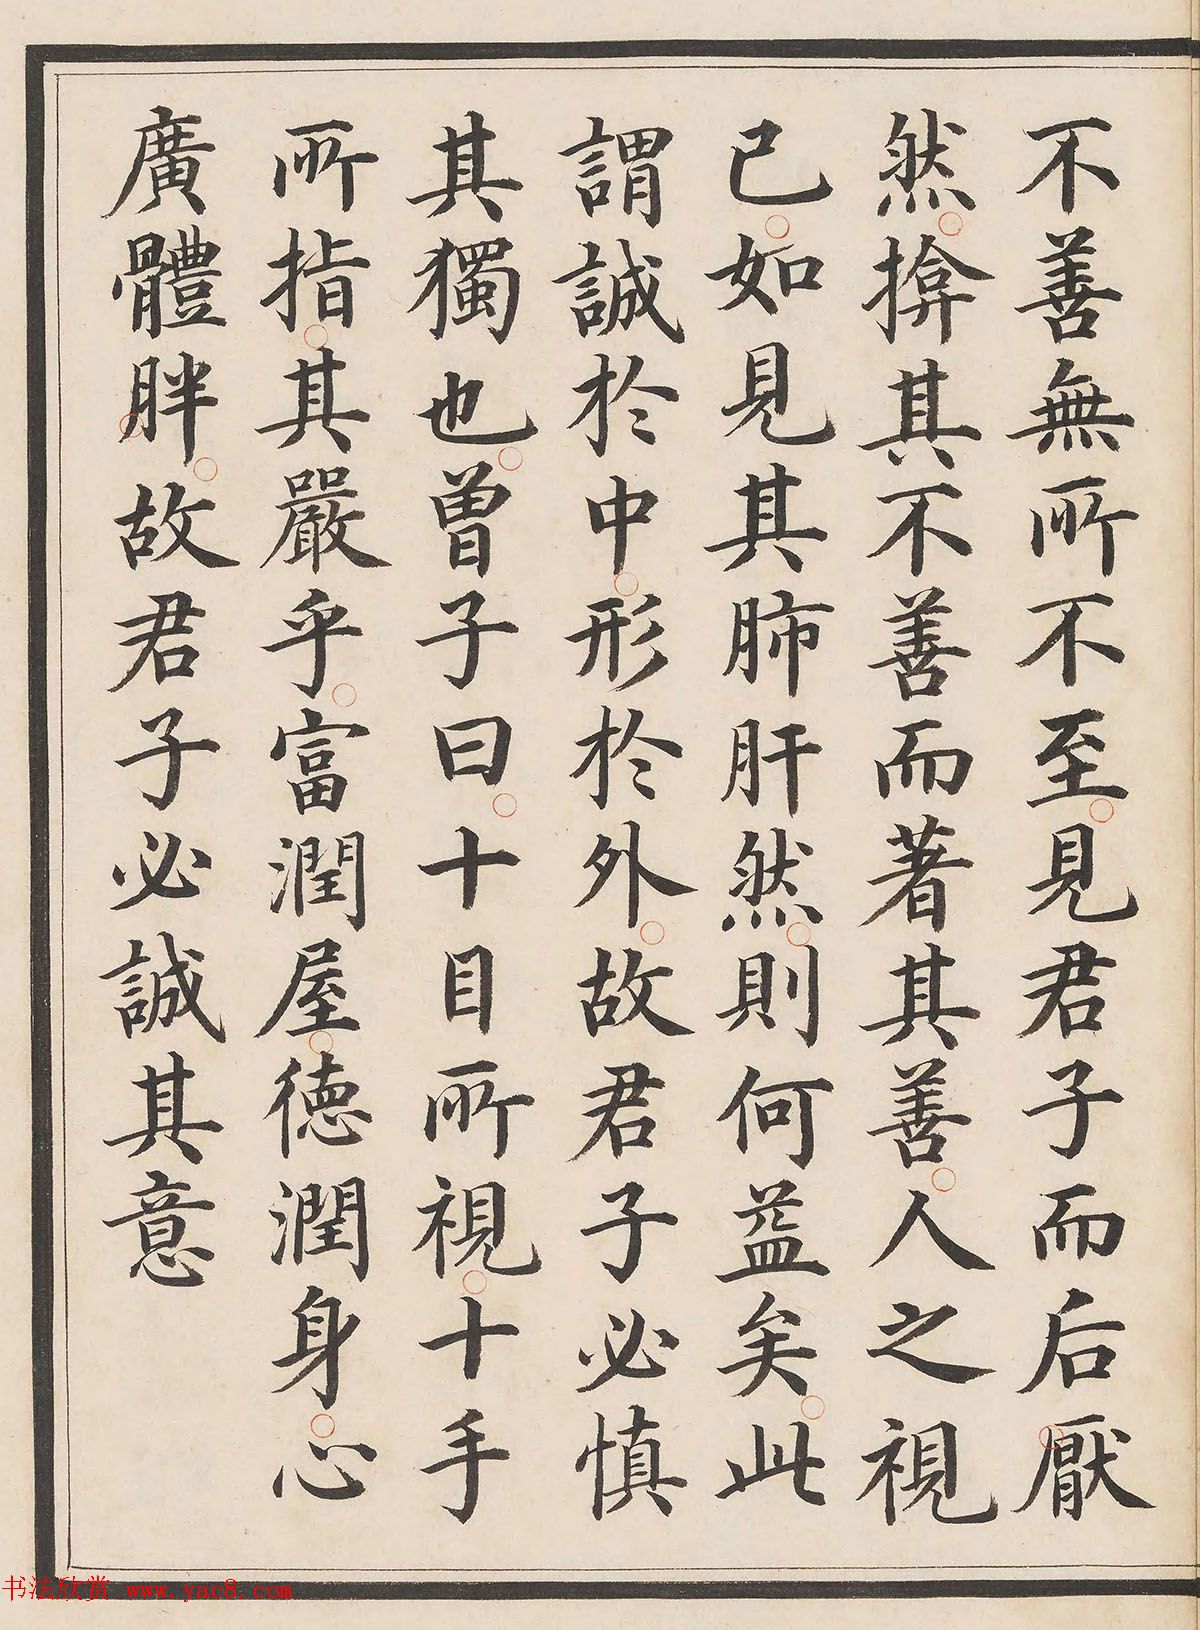 不善無所不至見君子而后厭
然揜其不善而著其善人之視
已如見其肺肝然則何益矣此
謂誠於中形於外故君子必慎
其獨也曽子曰十目所視十手
所指其嚴乎富潤屋徳潤身心
廣體胖故君子必誠其意
书法欣赏 www.yac8.com